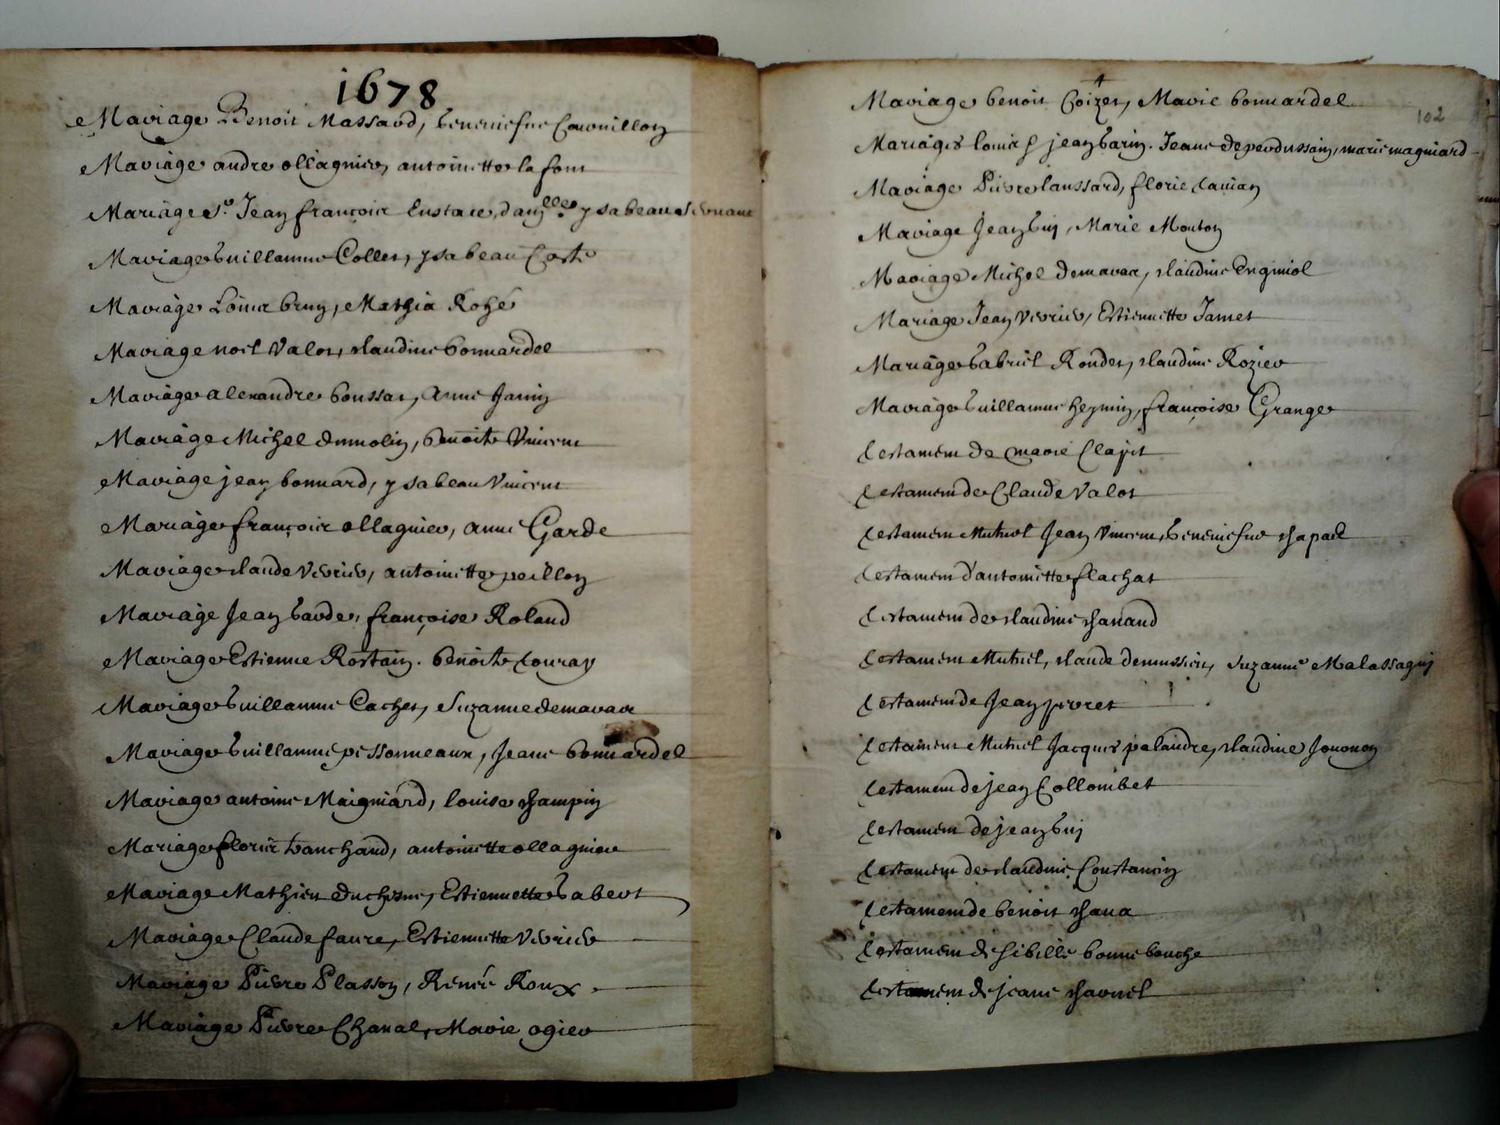 1678
Mariage Benoit Massard, beneniefue Cornillon
Mariage andre ollagnier, antoinette la font
Mariage Sr. Jean françoir Eustace, danlle. ysabeau
Mariage Guillaumme Collet, ysabeau Coste
Mariage Loüis bruy, Mathia Rozé
Mariage noel Valot, claudine bonnardel
Mariage alexandre boussat, anne Janin
Mariage Michel dumolin, benoite Vincent
Mariage jean bonnard, ysabeau Vincent
Mariage françoir ollagnier, anne Garde
Mariage claude Verrier, antoinette peillon
Mariage Jean barde, françoise Roland
Mariage Estienne Rostain. benoite
Mariage Guillaumme Cachet, Suzanne demarar
Mariage Guillaumme pessonneaux, Jeane bonnardel
Mariage antoine Maigniard, louise champin
Mariage floris tranchand, antoinette ollagnier
Mariage Mathieu duchesne, Estiennette Gabert
Mariage Claude faure, Estiennette Verrier
Mariage Pierre Plasson, Renée Roux.
Mariage Pierre Chanal, Marie ogier
102
Mariage benoit Coizet, Marie bonnardel
Mariages louis &amp; jean barin. Jeane de perdussin, marie magniard
Mariage Pierre laussard, florie
Mariage Jean Guj, Marie Mouton
Mariage Michel demarar, claudine Enginiol
Mariage Jean Verrier, Estiennette Jamet
Mariage Gabriel Rondet, claudine Rozier
Mariage Guillaumme heymin, françoise Grange
testament de marie Clapit
testament de Claude Valot
testament Mutuel Jean Vincent, beneniefue chapard
testament d'antoinette flachat
testament de claudine chanand
testament Mutuel, claude demussieu, Suzanne Malassagnj
testament de Jean pivret
testament Mutuel Jacques palandre, claudine Jouonon
testament de jean Collombet
testament de jean Guj
testament de claudine Constantin
testament de benoit chara
testament de sibille bonnebouche
testament de jeane charvet